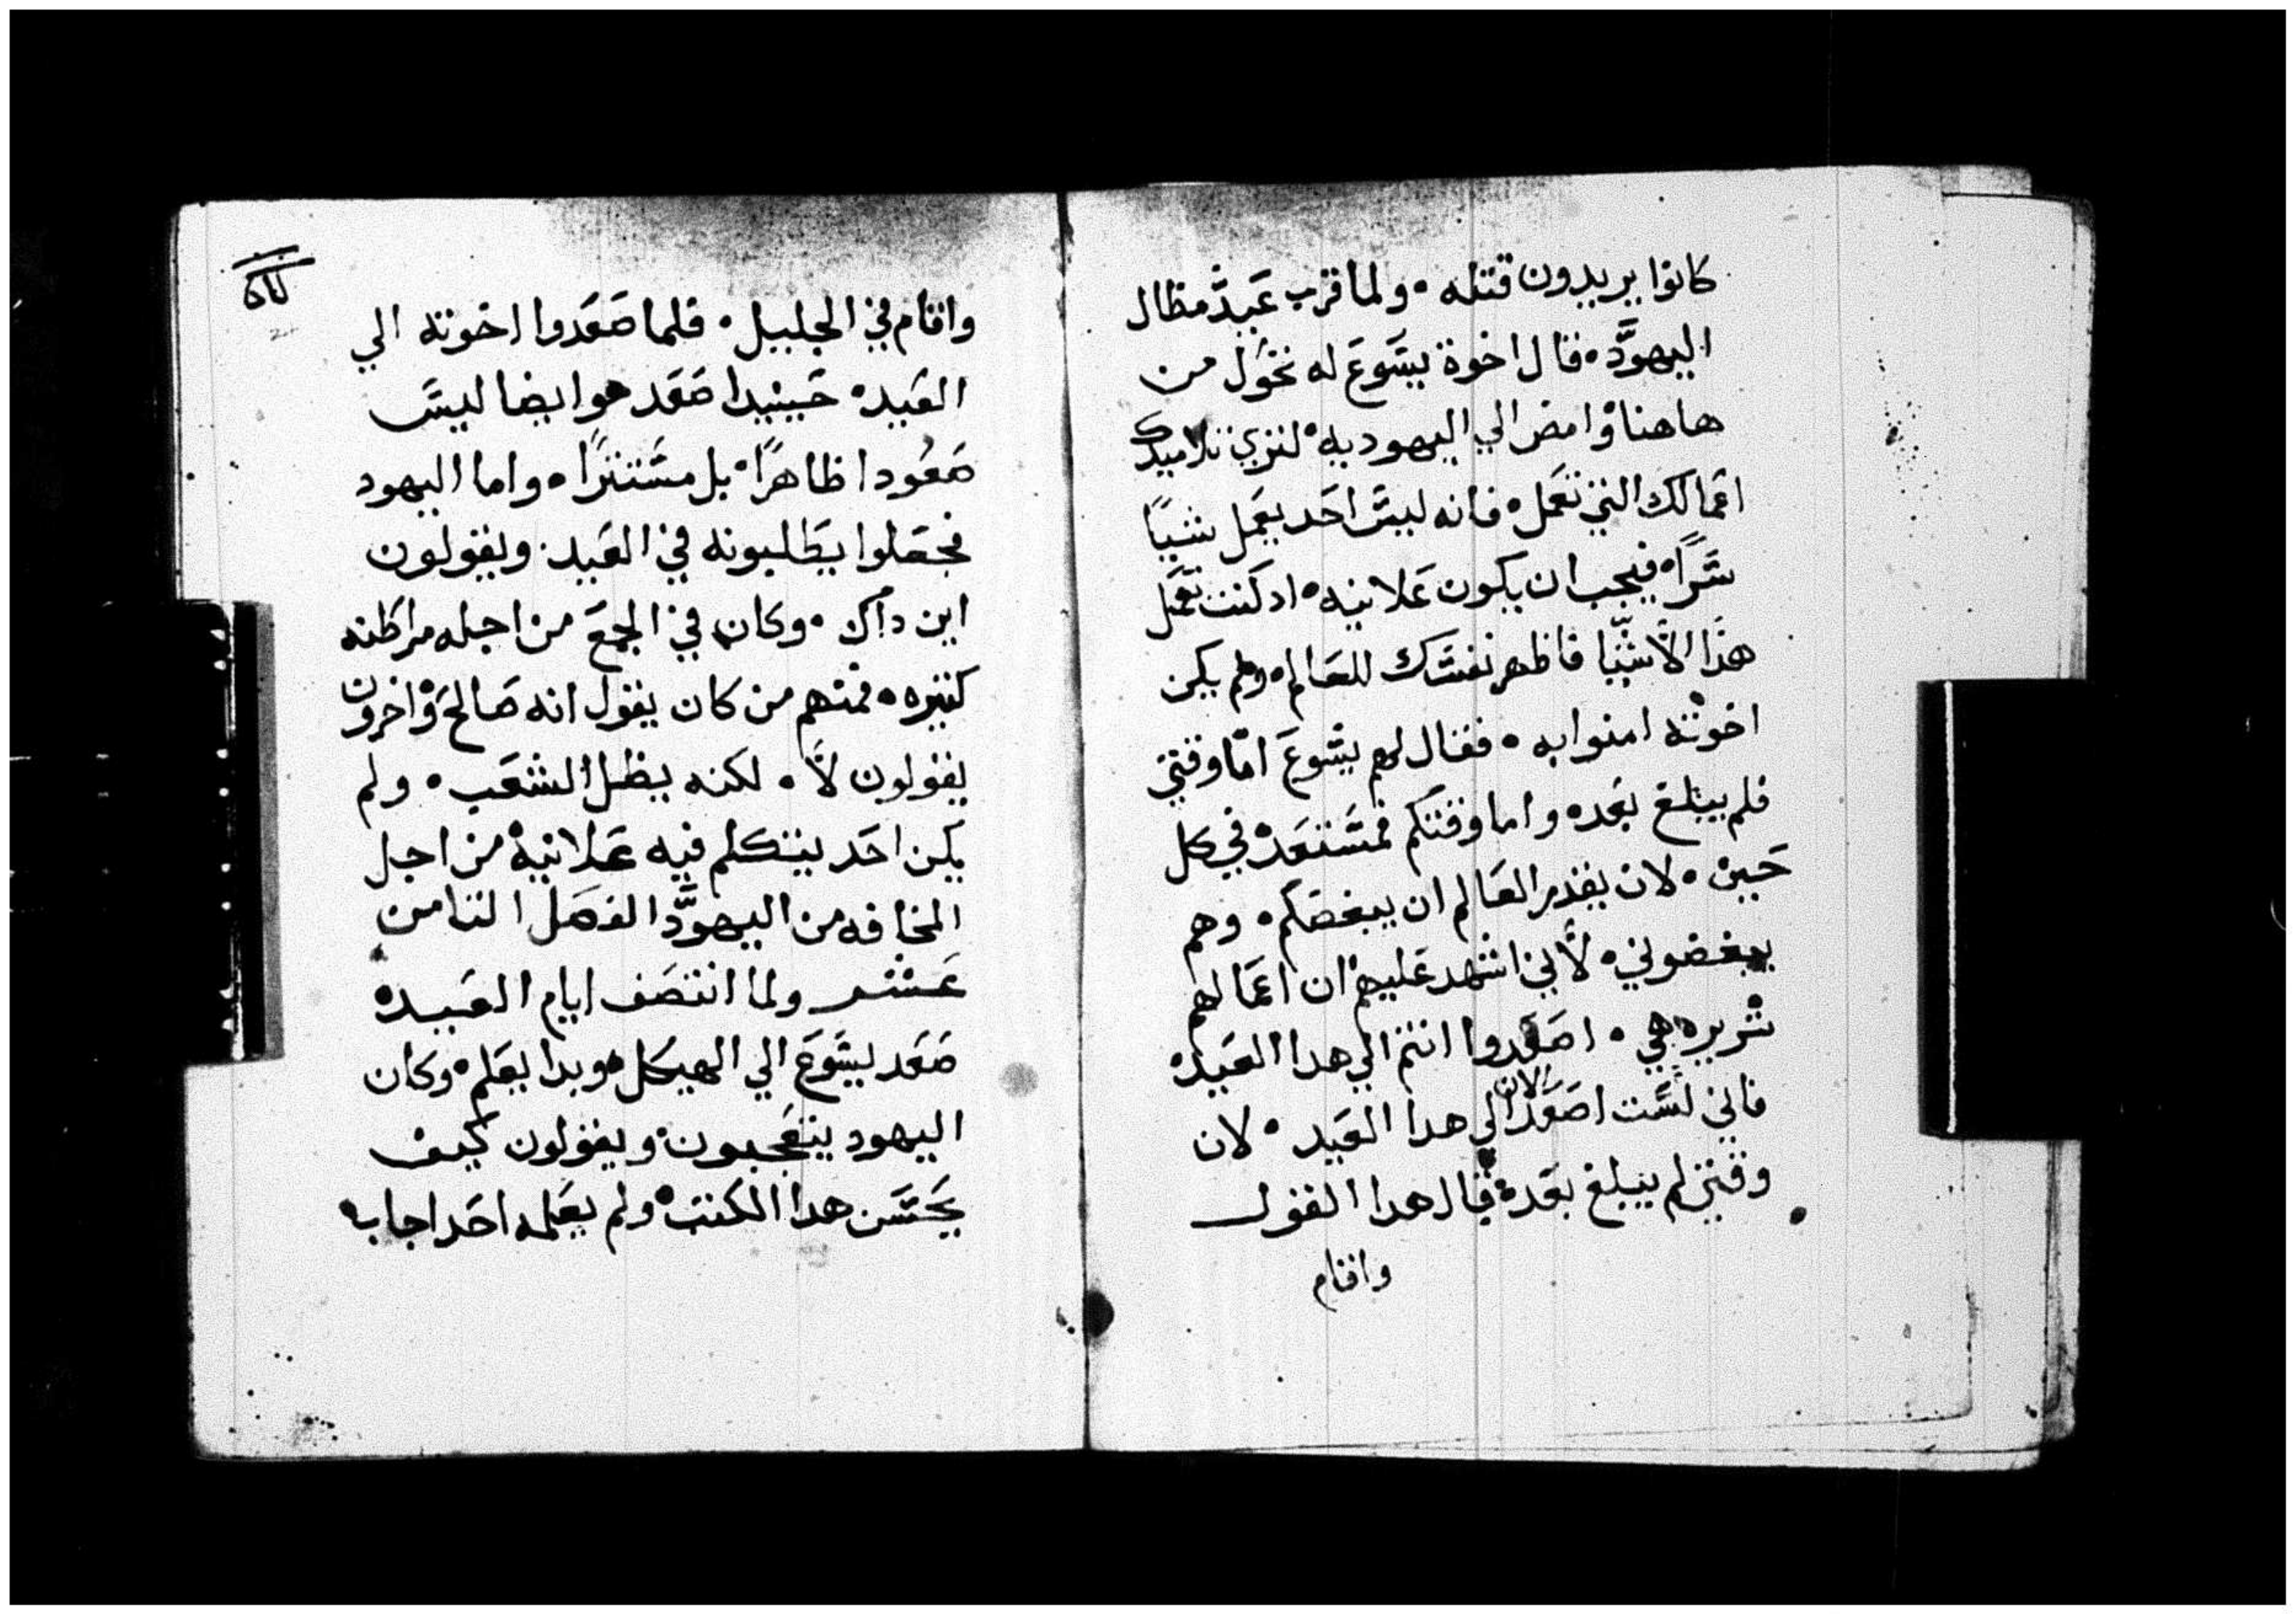 كانوا يريدون قتله ٠ ولما قرب عيد مظال
اليهود ٠ قال اخوة يسوع له تحول من
هاهنا وامض الي اليهوديه ٠ لتري تلاميدك
اعمالك التي تعمل ٠ فانه ليس احد يعمل شيا
سرا ٠ فيجب ان يكون علانيه ٠ اد كنت تعمل
هدا الاشيا فاظهر نفسك للعالم ٠ ولم يكن
اخوته امنوا به ٠ فقال لهم يسوع اما وقتي
فلم يبلغ بعد ٠ واما وقتكم فمستعد في كل
حين ٠ لان يقدر العالم ان يبغضكم ٠ وهم
يبغضوني ٠ لاني اشهد عليهم ان اعمالهم
شريره هي ٠ اصعدوا انتم الي هدا العيد ٠
فاني لست اصعد الان الي هدا العيد ٠ لان
وقتي لم يبلغ بعد ٠ قال هدا القول
واقام
واقام في الجليل ٠ فلما صعدوا اخوته الي
العيد ٠ حينيدا صعد هو ايضا ليس
صعودا ظاهرا ٠ بل مستترا ٠ واما اليهود
فجعلوا يطلبونه في العيد ٠ ويقولون
اين داك ٠ وكان في الجمع من اجله مراطنه
كتيره ٠ فمنهم من كان يقول انه صالح واخرون
يقولون لا ٠ لكنه يظل الشعب ٠ ولم
يكن احد يتكلم فيه علانية من اجل
المخافه من اليهود الفصل التامن
عشر ولما انتصف ايام العيد ٠
صعد يسوع الي الهيكل ٠ وبدا يعلم ٠ وكان
اليهود يتعجبون ويقولون كيف
يحسن هدا الكتب ٠ ولم يعلمه احد اجاب